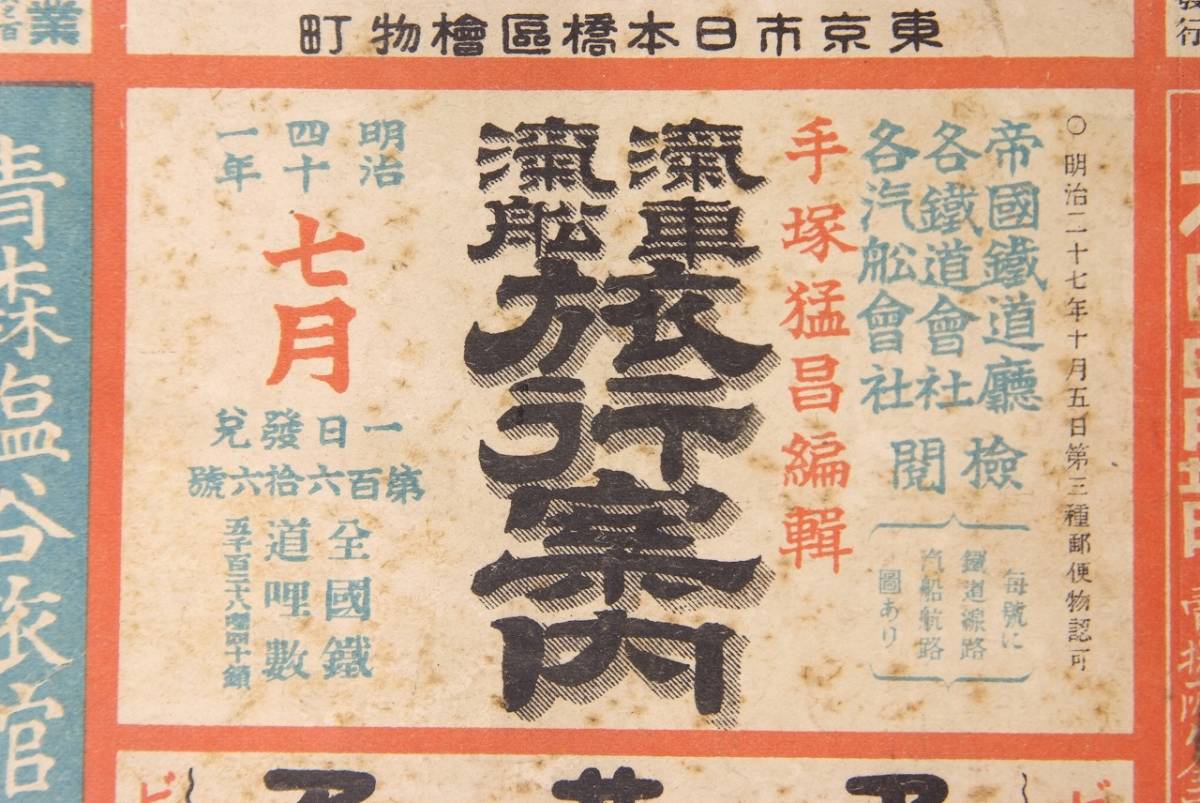 東京市日本橋區檜物町
○明治二十七年十月五日第三種郵便物認可
帝國鐵道廳
各鐵道會社
各汽船會社
檢閱
每號に
鐵道線路
汽船航路
圖あり
手塚猛昌編輯
滊車
滊船
旅行案内
明治
四十
一年
七月
一日發兌
第百六拾六號
全國鐵
道哩數
五千百二十八哩四十鎖
青森塩谷旅館
業